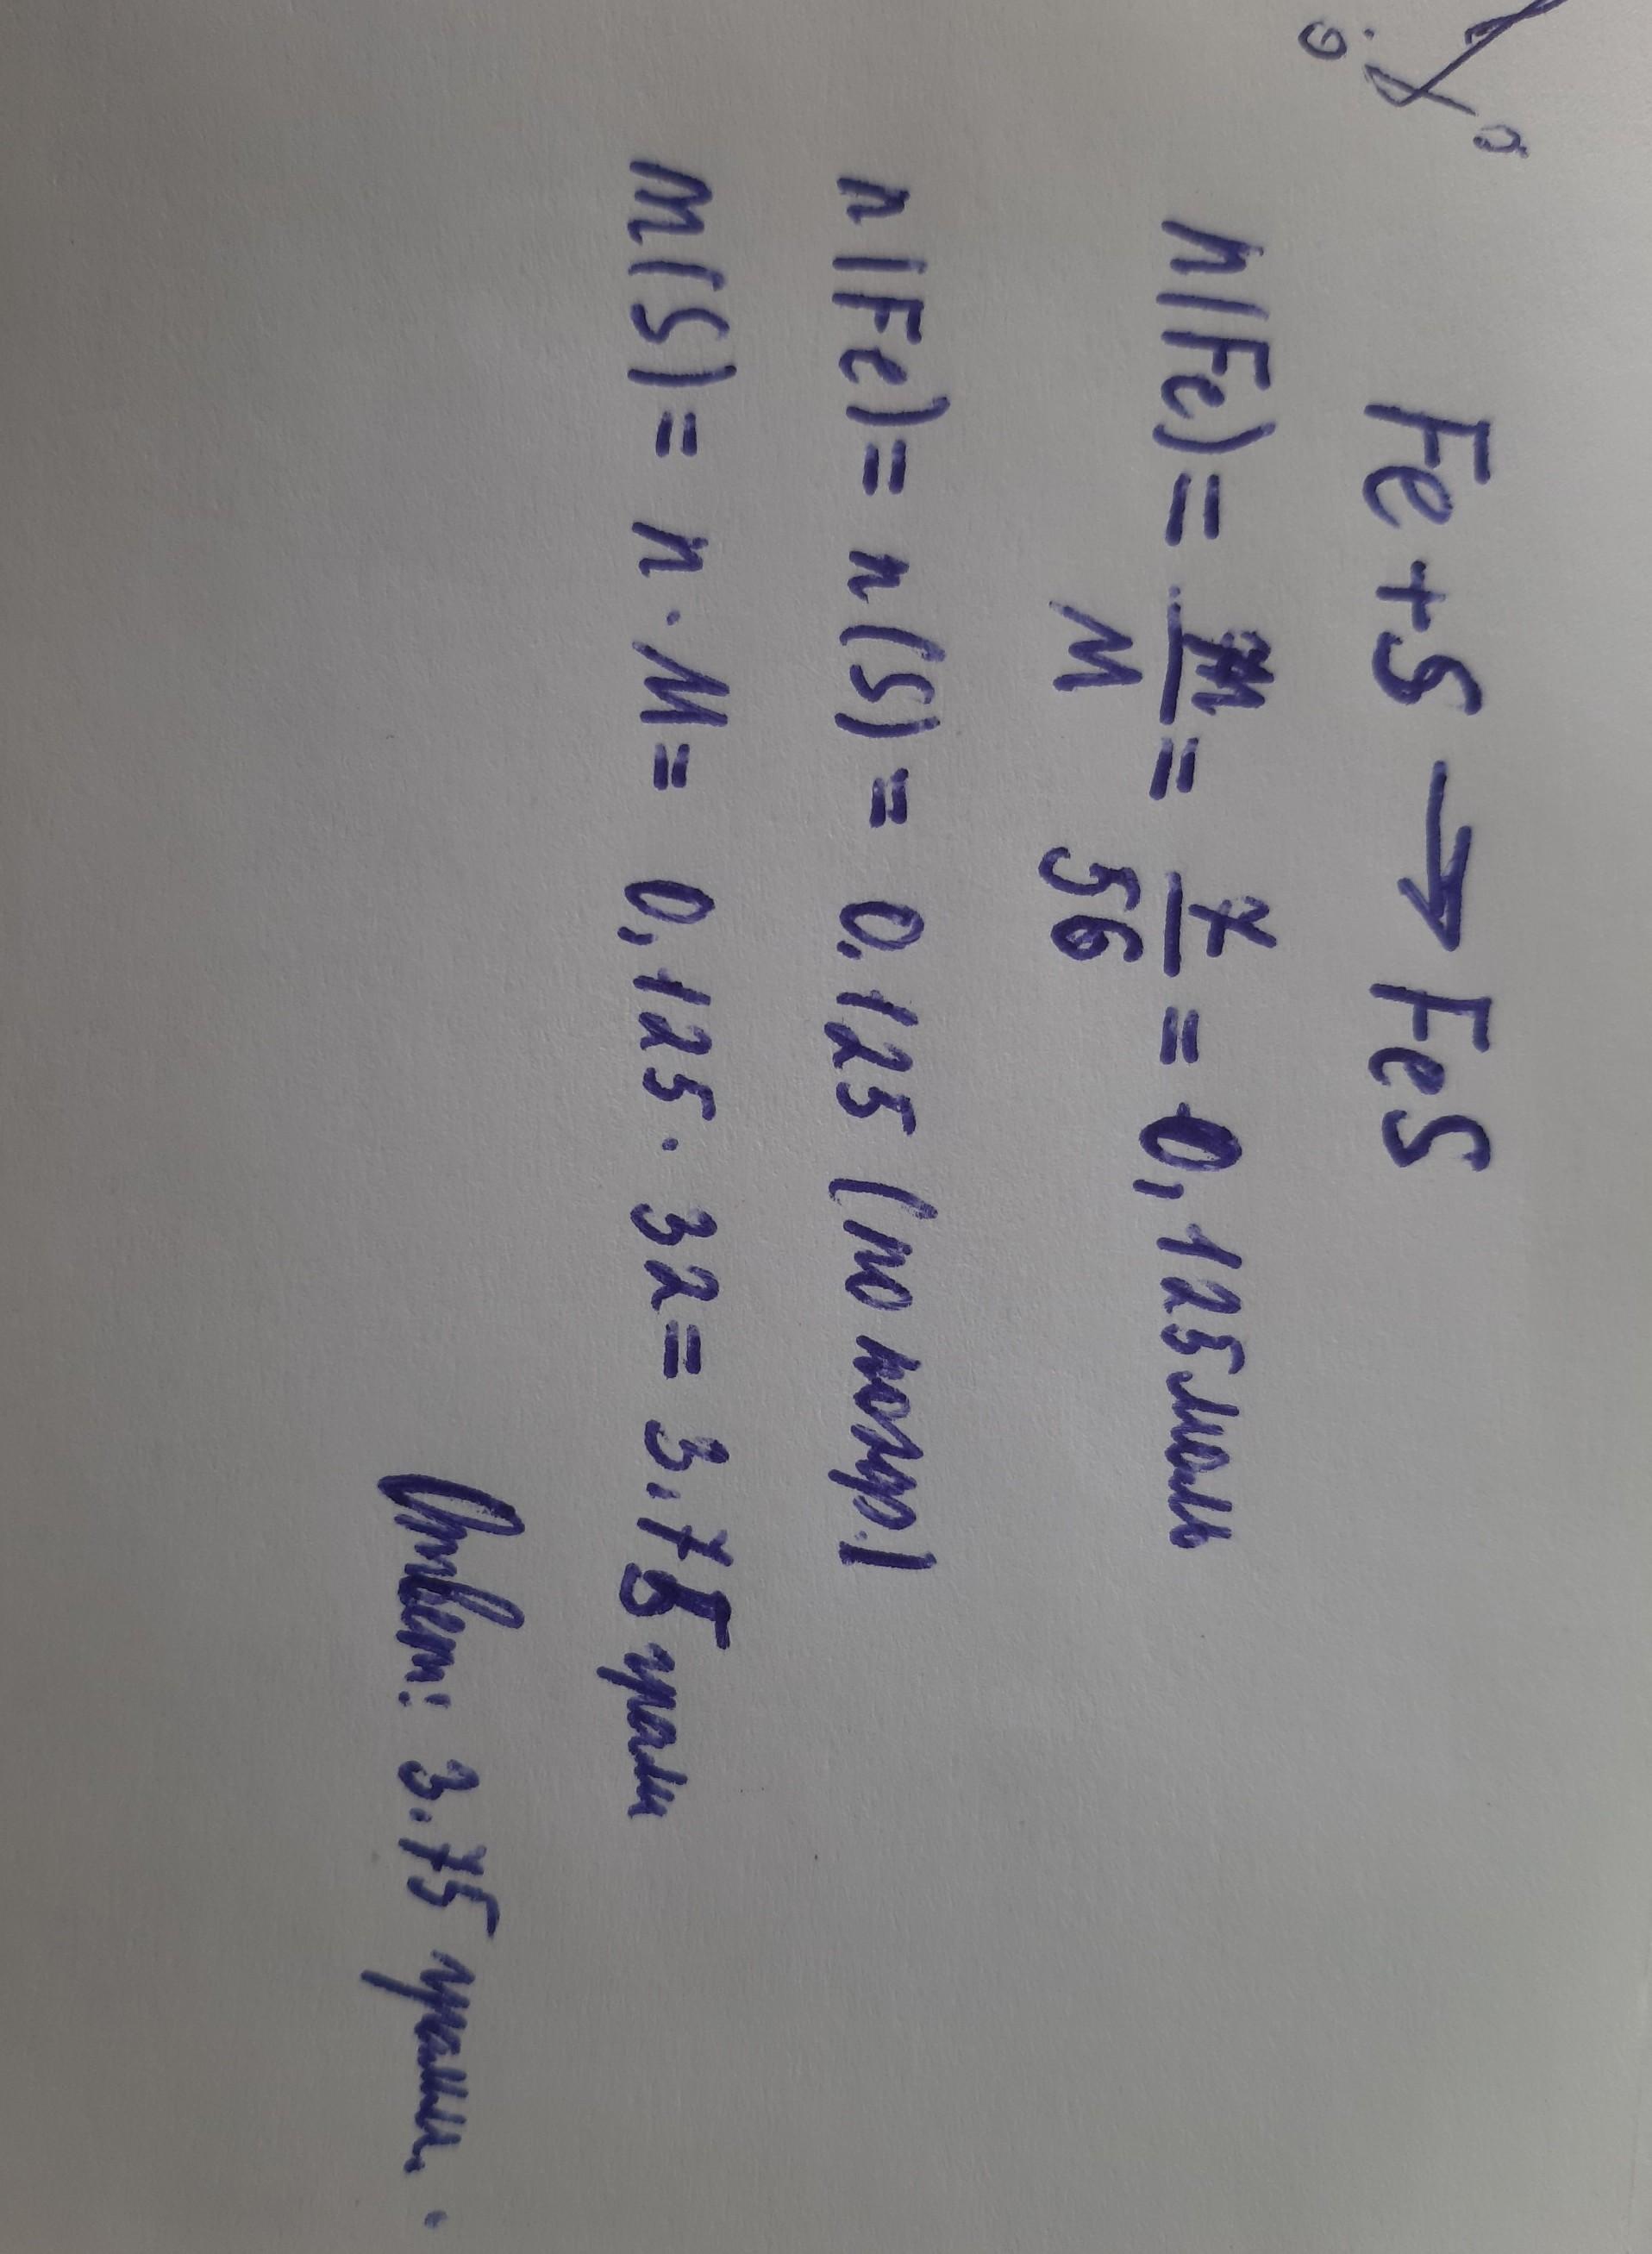 Fe + S → FeS
n(Fe) = m/M = 7/56 = 0,125 моль
n(Fe) = n(S) = 0.125 (по коэф.)
m(S) = n · M = 0,125 · 32 = 3.75 грамм
Ответ: 3.75 грамм.